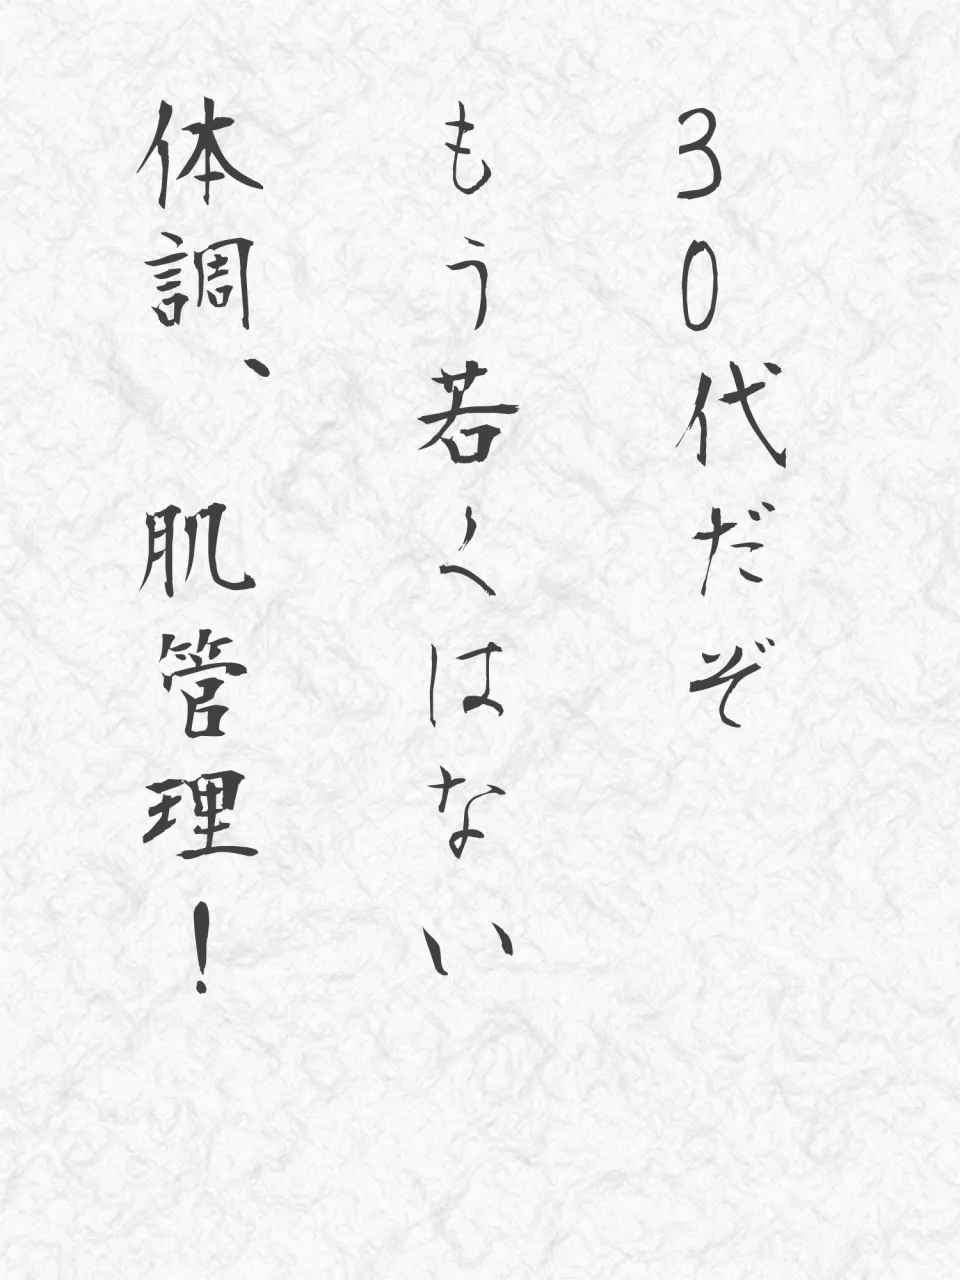 30代だぞ
もう若くはない
体調、肌管理!